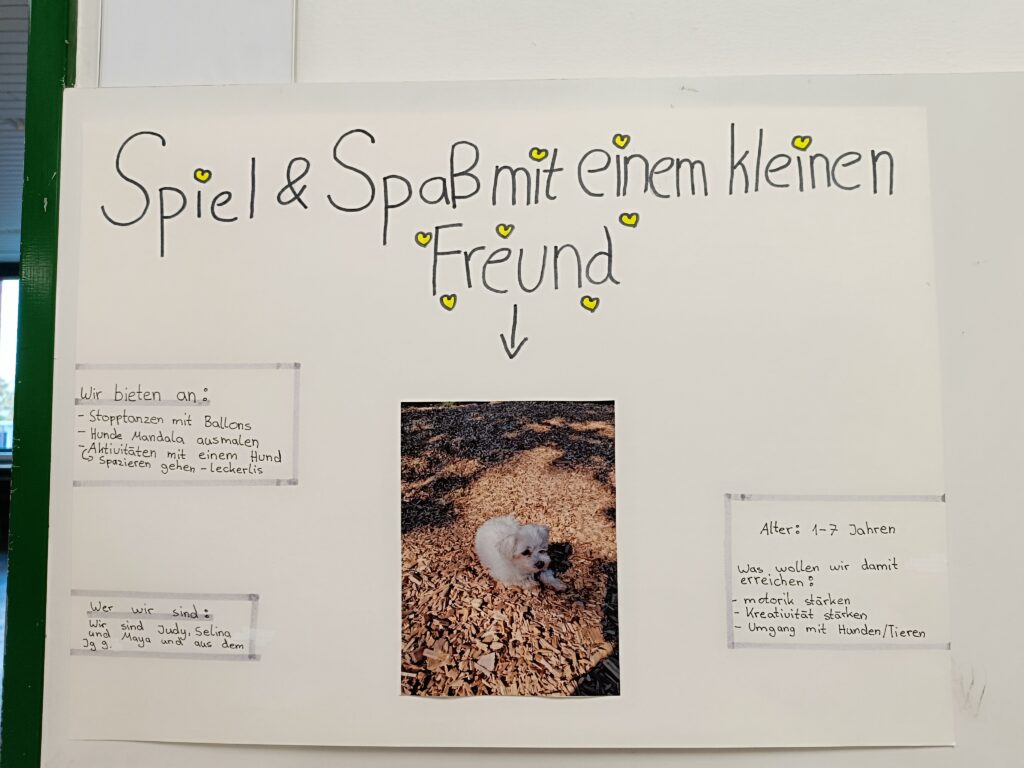 Spiel & Spaß mit einem kleinen
Freund
Wir bieten an:
- Stopptanzen mit Ballons
- Hunde Mandala ausmalen
- Aktivitäten mit einem Hund
↳ Spazieren gehen - leckerlis
Wer wir sind:
Wir sind Judy, Selina
und Maya und aus dem
Jg 9.
Alter: 1-7 Jahren
Was wollen wir damit
erreichen:
- motorik stärken
- Kreativität stärken
- Umgang mit Hunden/Tieren